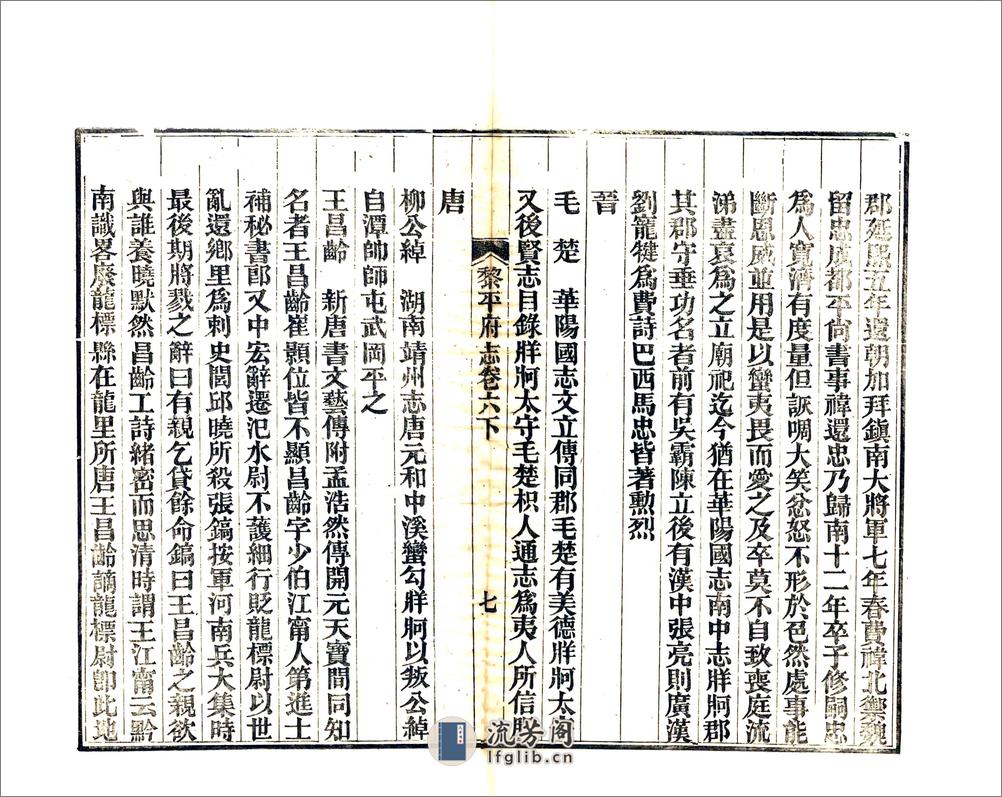 郡延熙五年還朝加拜鎮南大將軍七年春費禕北禦魏
留忠成都平尚書事禕還忠乃歸南十二年卒子修嗣忠
為人寬濟有度量但詼啁大笑忿怒不形於色然處事能
斷恩威並用是以蠻夷畏而愛之及卒莫不自致喪庭流
涕盡哀為之立廟祀迄今猶在華陽國志南中志牂牁郡
其郡守垂功名者前有吳霸陳立後有漢中張亮則廣漢
劉寵犍為費詩巴西馬忠皆著勲烈
晉
毛楚 華陽國志文立傳同郡毛楚有美德牂牁太守
又後賢志目錄牂牁太守毛楚枳人通志為夷人所信服
黎平府志卷六下 七
唐
柳公綽 湖南靖州志唐元和中溪蠻勾牂牁以叛公綽
自潭帥師屯武岡平之
王昌齡 新唐書文藝傳附孟浩然傳開元天寶間同知
名者王昌齡崔顥位皆不顯昌齡字少伯江甯人第進士
補秘書郎又中宏辭遷汜水尉不護細行貶龍標尉以世
亂還鄉里為刺史閭邱曉所殺張鎬按軍河南兵大集時
最後期將戮之辭曰有親乞貸餘命鎬曰王昌齡之親欲
與誰養曉默然昌齡工詩緒密而思清時謂王江甯云黔
南識畧廢龍標縣在龍里所唐王昌齡謫龍標尉卽此地
流芳阁
lfglib.cn